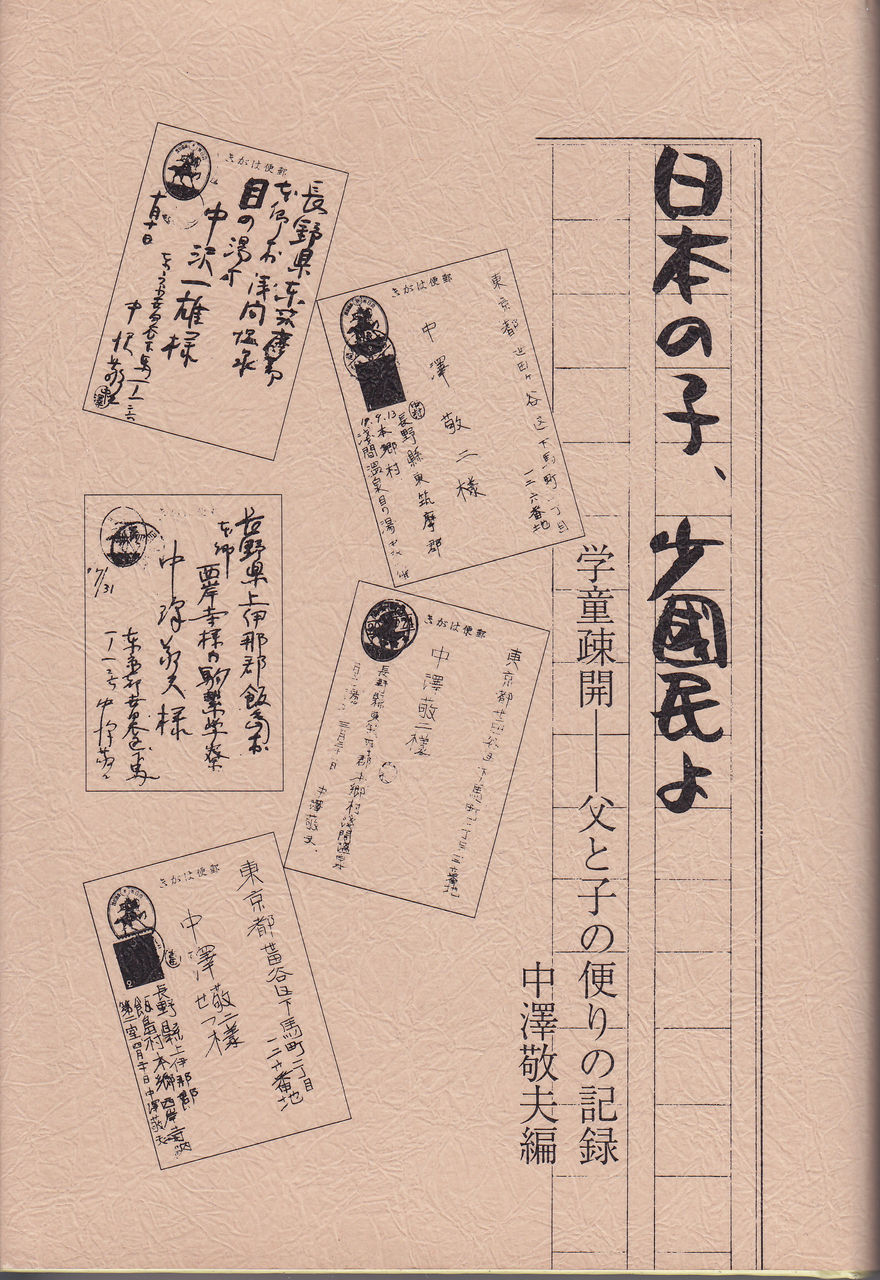 日本の子、少國民よ
学童疎開――父と子の便りの記録
中澤敬夫編
きがは便郵
長野県東筑摩郡
本郷村浅間温泉
目の湯方
中沢一雄様
十月十日
きがは便郵
東京都世田ヶ谷区下馬町一丁目
一二六番地
中澤敬二様
長野縣東筑摩郡
本郷村
浅間温泉目の湯
19.9.13
長野県上伊那郡飯島村
本郷
西岸寺様内駒繋学寮
中澤敬夫様
東京都世田谷区下馬
きがは便郵
東京都世田谷区下馬町
中澤敬二様
長野縣東筑摩郡本郷村浅間温泉
三月三十日
中澤敬夫
きがは便郵
東京都世田谷区下馬町一丁目
一二六番地
中澤敬二様
せつ
長野縣上伊那郡
飯島村本郷西岸寺内
第二室四月十日中澤敬夫